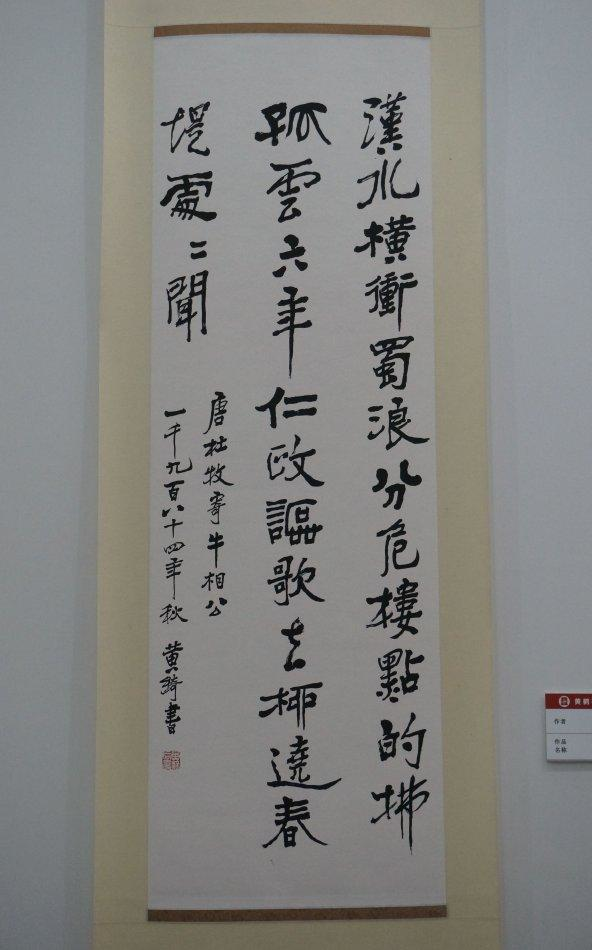 漢水橫衝蜀浪分危樓點的拂
孤雲六年仁政謳歌去柳遶春
堤處〻聞
唐杜牧寄牛相公
一千九百八十四年秋 黄綺書
黄鹤
作者
作品
名称